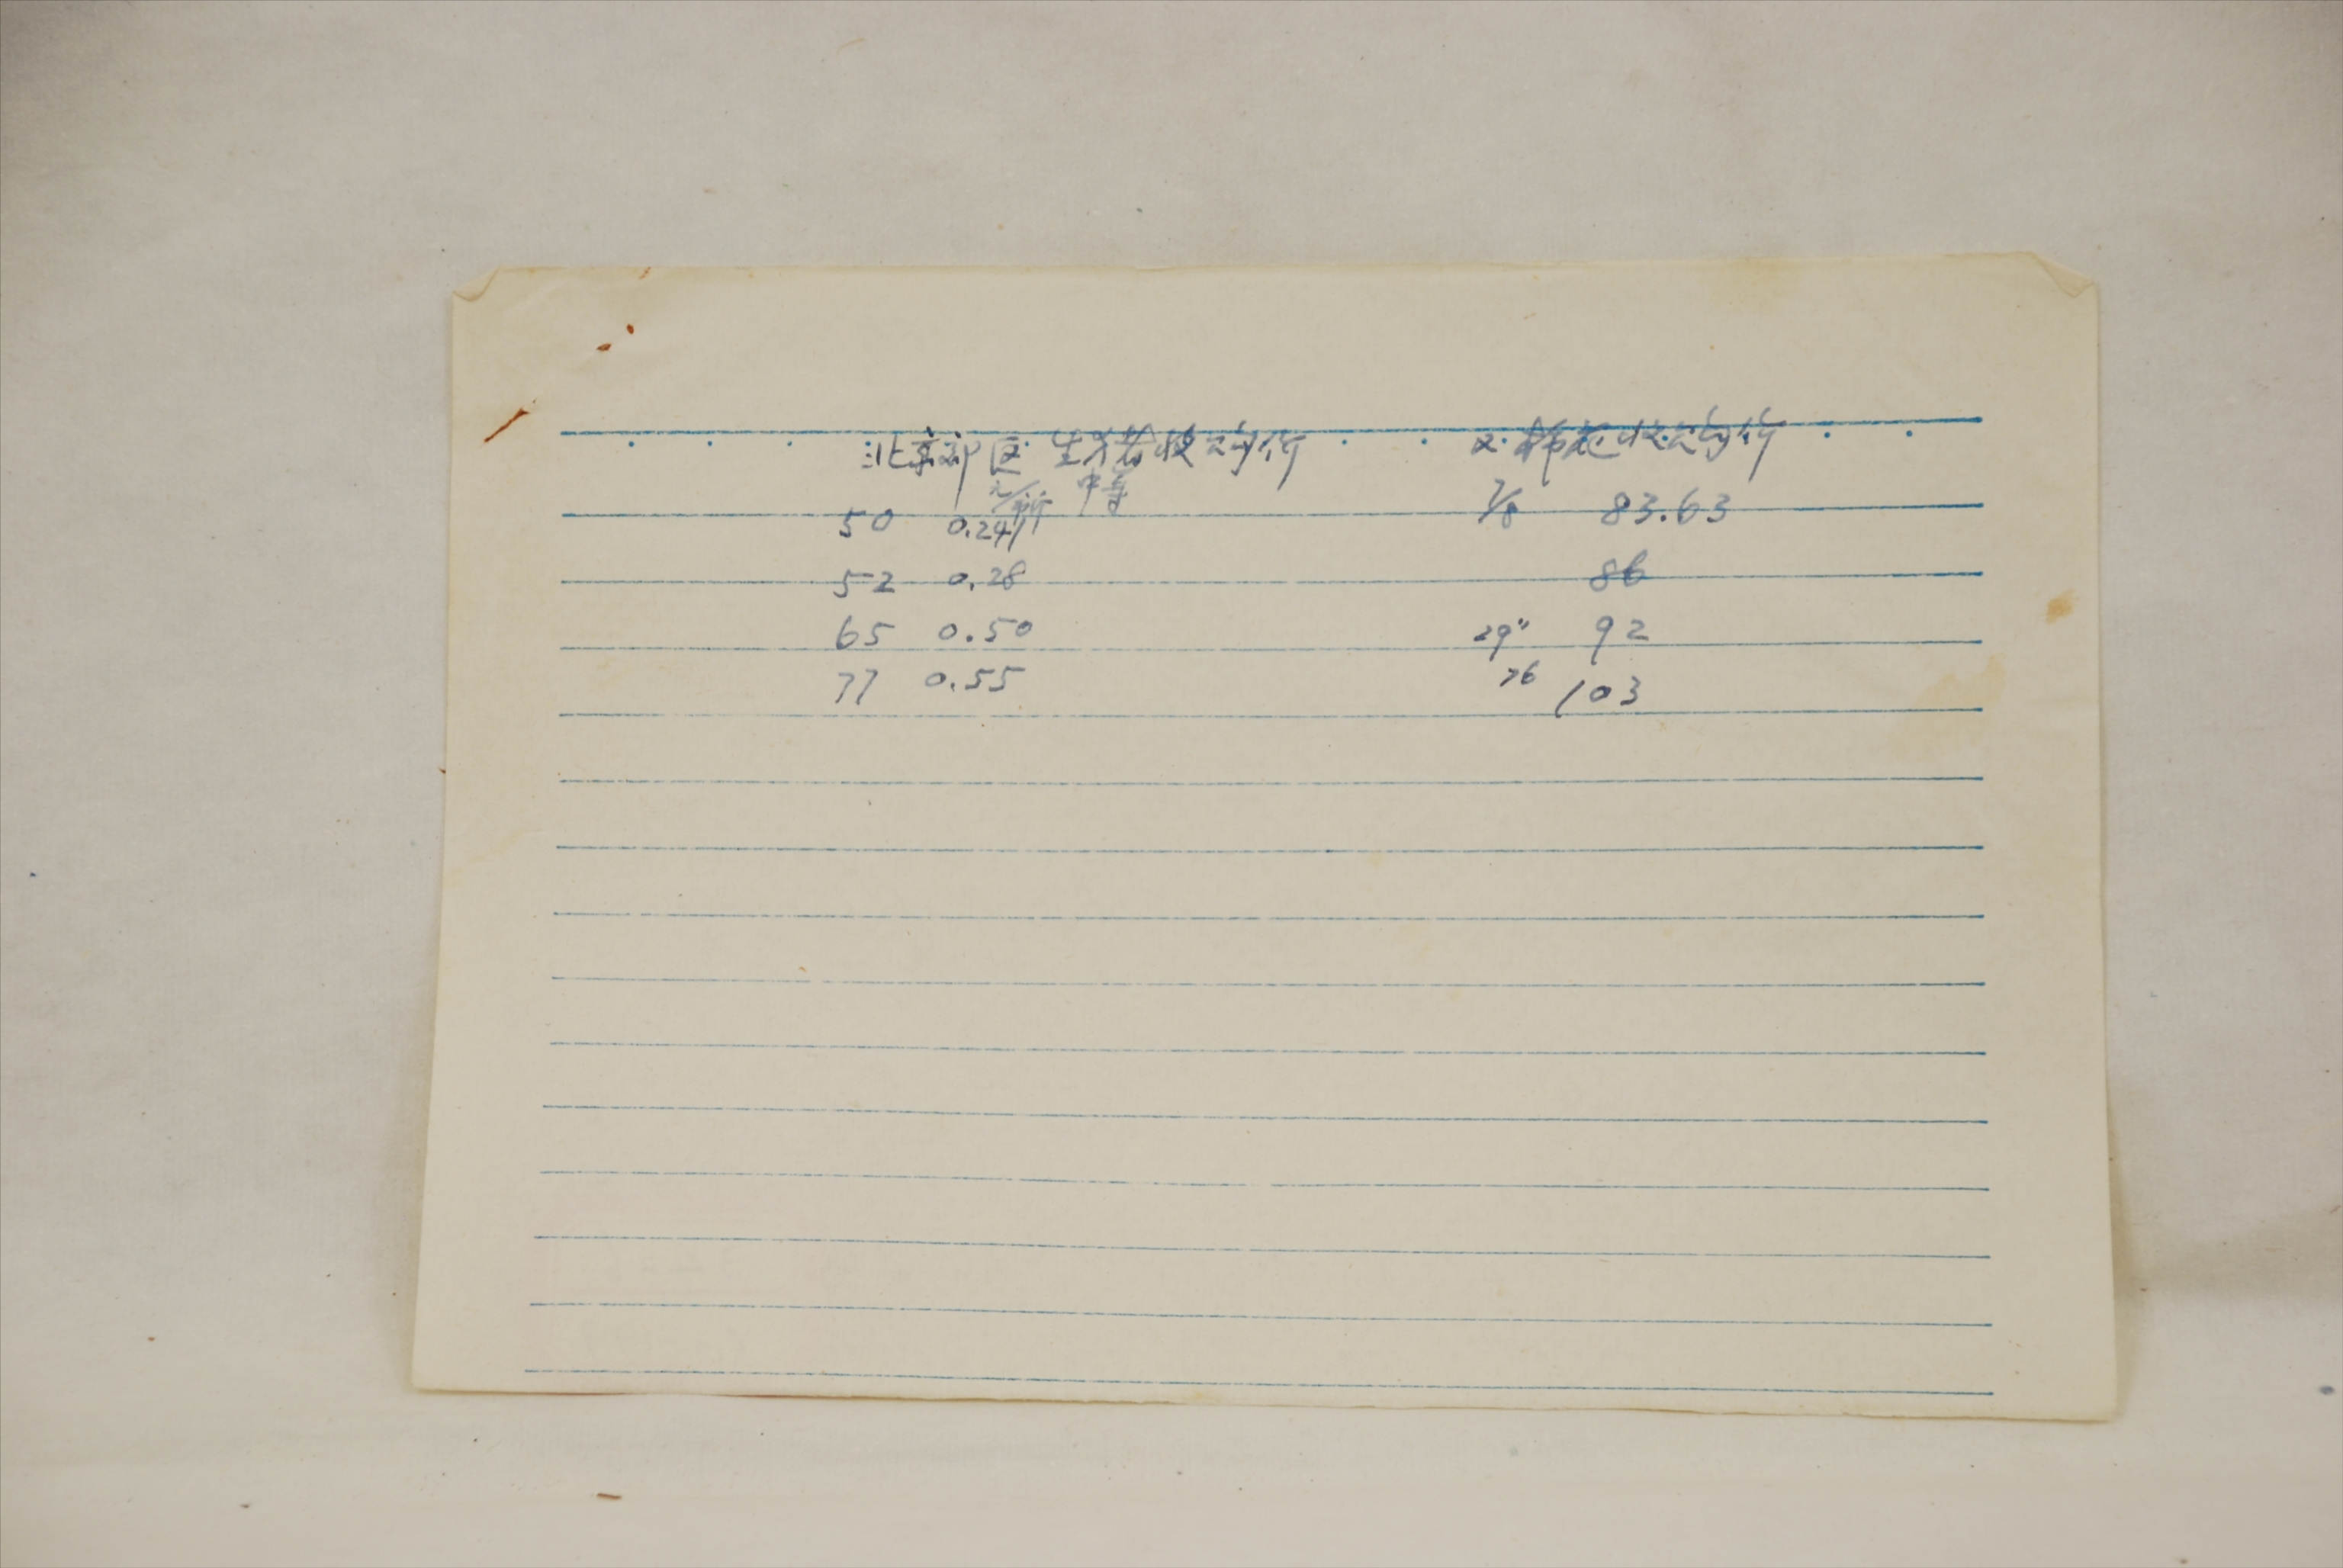 北京郊区 生猪收购价 又 棉花收购价
元/斤 中等
50 0.241 7/8 83.63
52 0.28 86
65 0.50 29" 92
77 0.55 76 103